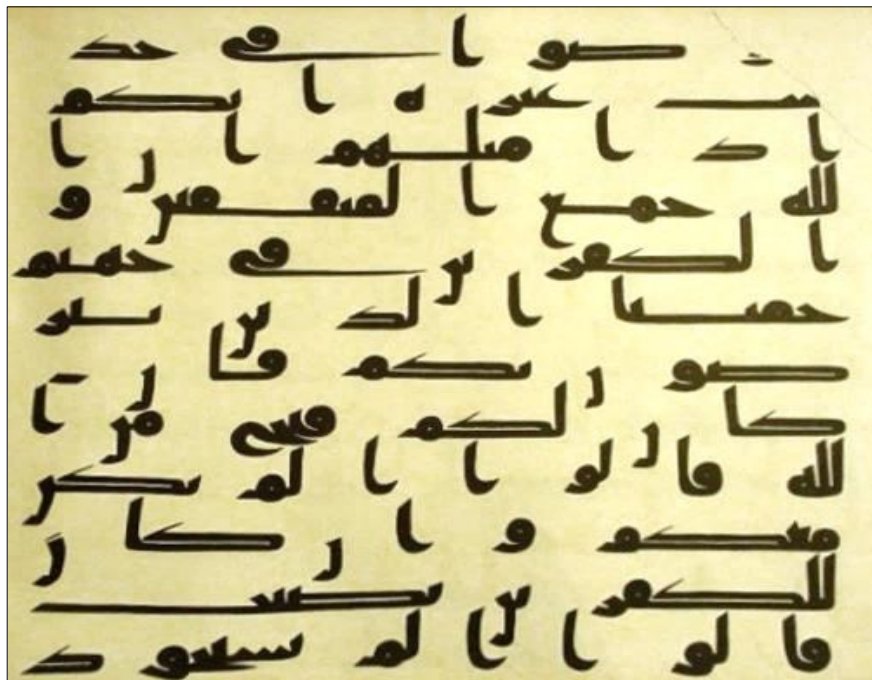 ضوا في حد
يث غيره انكم
اذا مثلهم ان ا
لله جمع المنفقين و
الكفرين في جهنم
جميعا الذين يتر
بصون بكم فان
كان لكم فتح من ا
لله قالوا الم نكن
معكم وان كان
للكفرين نصيب
قالوا الم نستحوذ